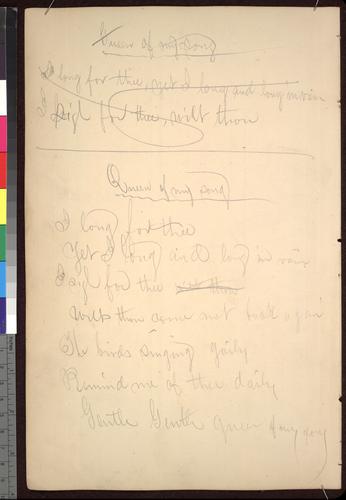 Queen of my song
I long for thee, yet I long and long in vain
I sigh for thee, wilt thou
Queen of my song
I long for thee
Yet I long and long in vain
I sigh for thee wilt thou
Wilt thou come not back again
The birds singing gaily
Remind me of thee daily
Gentle Gentle queen of my song